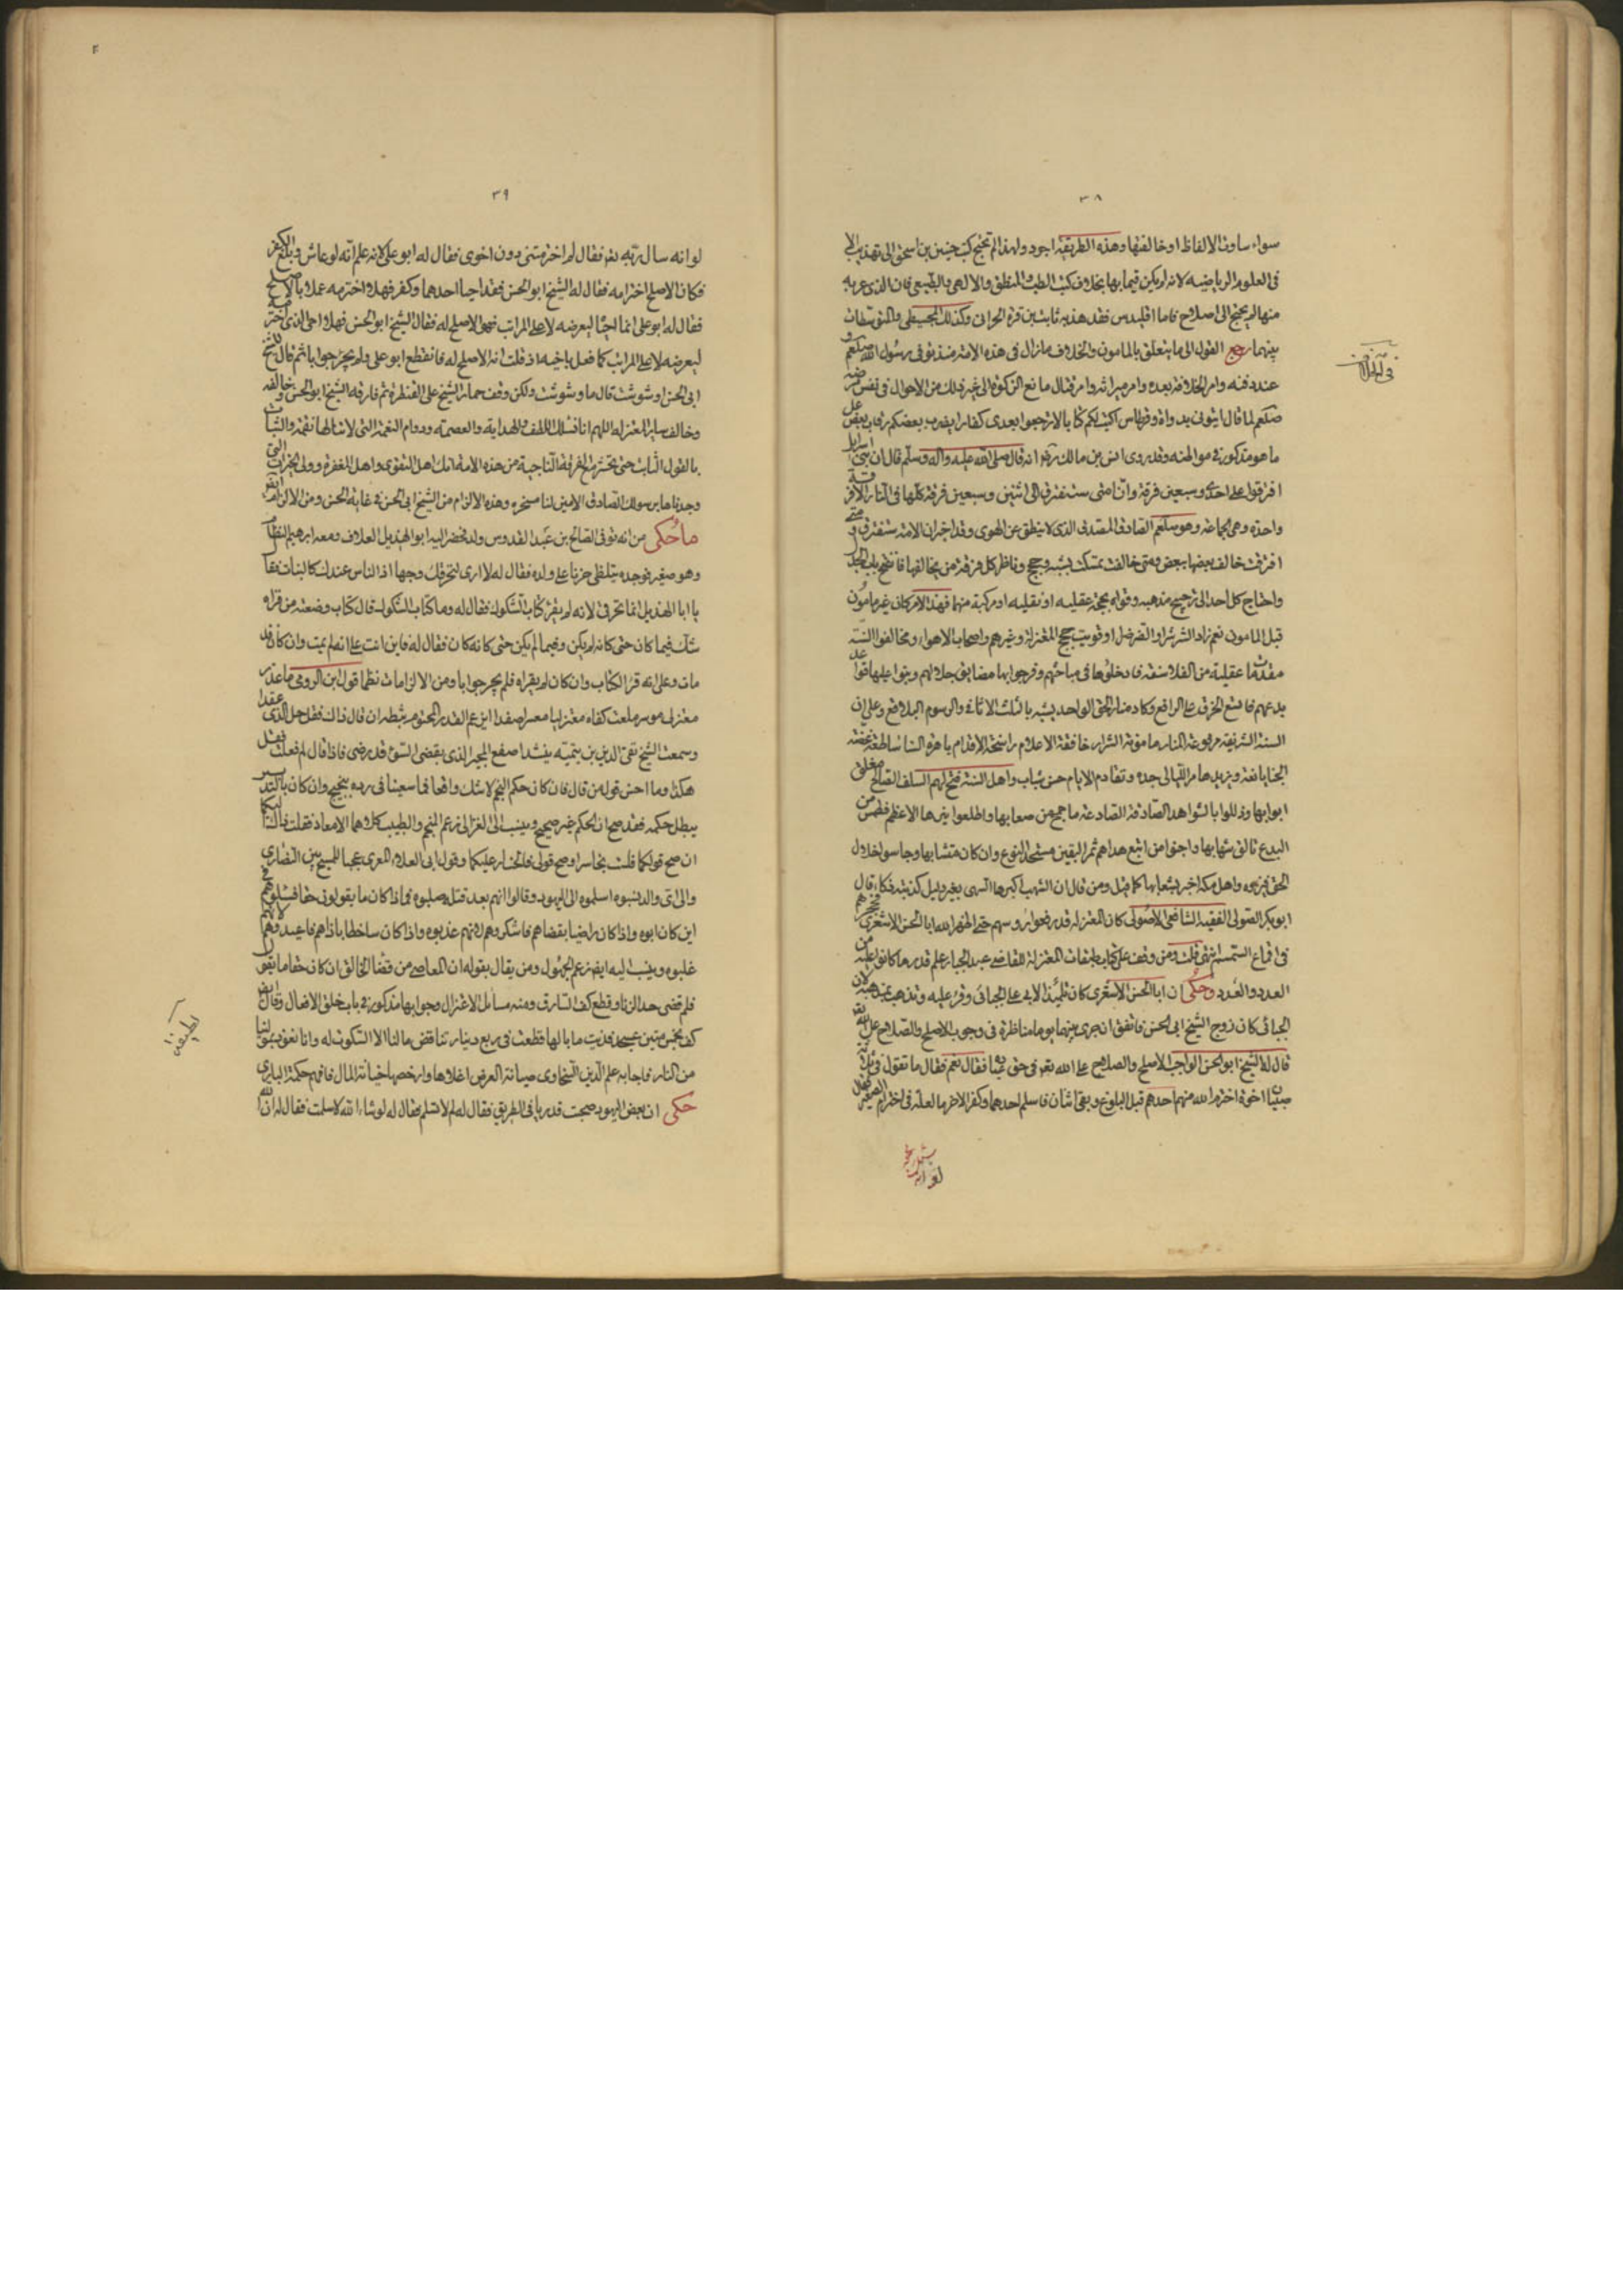 ٣٨
سواء ساوت الالفاظ او خالفتها وهذه الطريقة اجود ولهذا لم تحتج كتب حنين بن اسحق الى تهذيب الا
فى العلوم الرياضيه لانه لم يكن قيما بها بخلاف كتب الطب والمنطق والالاهى والطبيعى فان الذى عربه
منها لم يحتج الى اصلاح فاما اقليدس فقد هذبه ثابت بن قرة الحرانى وكذلك المجسطى والمتوسطات
بينهما رجع القول الى ما يتعلق بالمامون والخلاف مازال فى هذه الامة منذ توفى رسول الله صلعم
عند دفنه وامر الخلافة بعده وامر ميراثه وامر قتال مانع الزكوة الى غير ذلك من الاحوال فى نفس مرضه
صلعم لما قال ايتونى بدواة وقرطاس اكتب لكم كتابا لا ترجعوا بعدى كفارا يضرب بعضكم رقاب بعض على
ما هو مذكور فى مواطنه وقد روى انس بن مالك رضه انه قال صلى الله عليه واله وسلم قال ان بنى اسرايل
افترقوا على احدى وسبعين فرقة وان امتى ستفترق الى اثنين وسبعين فرقة كلها فى النار الا فرقة
واحدة وهى الجماعة وهو صلعم الصادق المصدق الذى لا ينطق عن الهوى وقد اخبر ان الامة ستفترق ومتى
افترقت خالف بعضها بعض ومتى خالفت تمسكت بشبه وحجج وناظر كل فرقة من يخالفها فانفتح باب الجدل
واحتاج كل احد الى ترجيح مذهبه وقوله بحجة عقليه او نقليه او مركبة منهما فهذا الامر كان غير مامون
قبل المامون نعم زاد الشر شرا والضر ضرا وقويت حجج المعتزلة وغيرهم واصحاب الاهواء ومخالفوا السنة
مقدمات عقلية من الفلاسفة فادخلوها فى مباحثهم وفرجوا بها مضايق جدالهم وبنوا عليها قواعد
بدعهم فاتسع الخرق على الراقع وكاد منار الحق الواحد يشتبه بالثلث الاثافى والرسوم البلاقع وعلى ان
السنة الشريفة مرفوعة المنار مامونة الشرار خافقة الاعلام راسخة الاقدام باهرة السنا ساطعة غضة
الجنا يانعة ويزيدها مر الليالى جدة وتقادم الايام حسن شباب واهل السنة فتح لهم السلف الصالح مغلق
ابوابها وذللوا بالشواهد الصادقة الصادعة ما جمح من صعابها واطلعوا نيرها الاعظم فطمس من
البدع تالق شهابها واجتنوا من اتبع هداهم ثمر اليقين متحد النوع وان كان متشابها وجاسوا خلال
الحق فميزوه واهل مكة اخبر بشعابها كما قيل ومن قال ان الشهب اكبرها السهى بغير دليل كذبته ذكاء قال
ابو بكر الصولى الفقيه الشافعى الاصولى كان المعتزلة قد رفعوا رؤسهم حتى اظهر الله ابا الحسن الاشعرى فحجزهم
فى اقماع السمسم انتهى قلت ومن وقف على كتاب طبقات المعتزلة للقاضى عبد الجبار علم قدر ما كانوا عليه من
العدد والعدد وحكى ان ابا الحسن الاشعرى كان تلميذا لابى على الجبائى وقرا عليه وتمذهب بمذهبه لان
الجبائى كان زوج الشيخ ابى الحسن فاتفق ان جرى بينهما يوما مناظرة فى وجوب الاصلح والصلاح على الله
قال له الشيخ ابو الحسن الواجب الاصلح والصلاح على الله تعه فى حق عباده فقال نعم فقال ما تقول فى ثلاثة
صبيان اخوة اخترم الله منهم احدهم قبل البلوغ وبقى اثنان فاسلم احدهما وكفر الاخر ما العلة فى اخترام الصغير فقال
٣٩
لو انه سال ربه تعه فقال لم اخترمتنى دون اخوى فقال له ابو على لانه علم انه لو عاش وبلغ كفر
فكان الاصلح اخترامه فقال له الشيخ ابو الحسن فقد احيا احدهما وكفر فهلا اخترمه عملا بالاصلح
فقال له ابو على انما احياه ليعرضه لاعلى المراتب فهو الاصلح له فقال الشيخ ابو الحسن فهلا احيى الذى اخترمه
ليعرضه لاعلى المراتب كما فعل باخيه اذ قلت انه الاصلح له فانقطع ابو على ولم يحر جوابا ثم قال للشيخ
ابى الحسن اوسوست قال ما وسوست ولكن وقف حمار الشيخ على القنطرة ثم فارقه الشيخ ابو الحسن وخالفه
وخالف ساير المعتزله اللهم انا نسئلك اللطف والهداية والعصمة ودوام النعمة التى لا تنالها نقمة والثبات
بالقول الثابت حتى نحشر مع الفرقة الناجية من هذه الامة انك اهل التقوى واهل المغفرة وولى الخيرات التى
وجدناها برسولك الصادق الامين لنا مسخره وهذه الالزام من الشيخ ابى الحسن فى غاية الحسن ومن الالزامات
ما حكى من انه توفى لصالح بن عبد القدوس ولد فحضر اليه ابو الهذيل العلاف ومعه ابرهيم النظام
وهو صغير فوجده يتلظى حزنا على ولده فقال له لا ارى لتحرقك وجها اذ الناس عندك كالنبات فقال
يا ابا الهذيل انما تحرقى لانه لم يقرا كتاب الشكوك فقال له وما كتاب الشكوك قال كتاب وضعته من قراه
شك فيما كان حتى كانه لم يكن وفيما لم يكن حتى كانه كان فقال له فابن انت على انه لم يمت وان كان قد
مات وعلى انه قرا الكتاب وان كان لم يقراه فلم يحر جوابا ومن الالزامات نظما قول ابن الرومى ما عذر
وسمعت الشيخ تقى الدين بن تيمية ينشد اصفع المجبر الذى بقضى السوء قد رضى فاذا قال لم فعلت فقل
هكذا وما احسن قول من قال فان كان حكم النجم لا شك واقعا فما سعينا فى رده بنجيح وان كان بالتدبير
يبطل حكمه فقد صح ان الحكم غير صحيح وينسب الى الغزالى زعم المنجم والطبيب كلاهما لا معاد فقلت ذاك اليكما
ان صح قولكما فلست بخاسر او صح قولى فالخسار عليكما وقول ابى العلاء المعرى عجبا للمسيح بين النصارى
والى اى والد نسبوه اسلموه الى اليهود وقالوا انهم بعد قتله صلبوه فاذا كان ما يقولون حقا فسلوهم
اين كان ابوه واذا كان راضيا بقضاهم فاشكروهم لانهم عذبوه واذا كان ساخطا باذاهم فاعبدوهم لانهم
غلبوه وينسب اليه ايضا زعم الجهول ومن يقال بقوله ان المعاصى من قضا الخالق ان كان حقا ما يقول
فلم قضى حد الزنا وقطع كف السارق ومنه مسائل الاعتزال وجوابها مذكور فى باب خلق الافعال وقال ايضا
كف بخمس ميئين عسجد فديت ما بالها قطعت فى ربع دينار تناقض ما لنا الا السكوت له وانا نعوذ بمولانا
من النار فاجابه علم الدين السخاوى صيانة العرض اغلاها وارخصها خيانة المال فافهم حكمة البارى
حكى ان بعض اليهود صحبت قدريا فى الطريق فقال له لم لا تسلم فقال له لو شاء الله لاسلمت فقال له ان الله